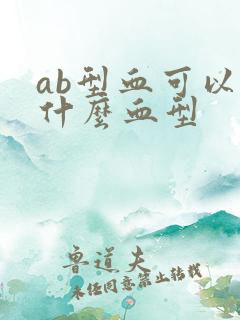 ab型血可以
什麼血型
鲁道夫
未经同意禁止转载